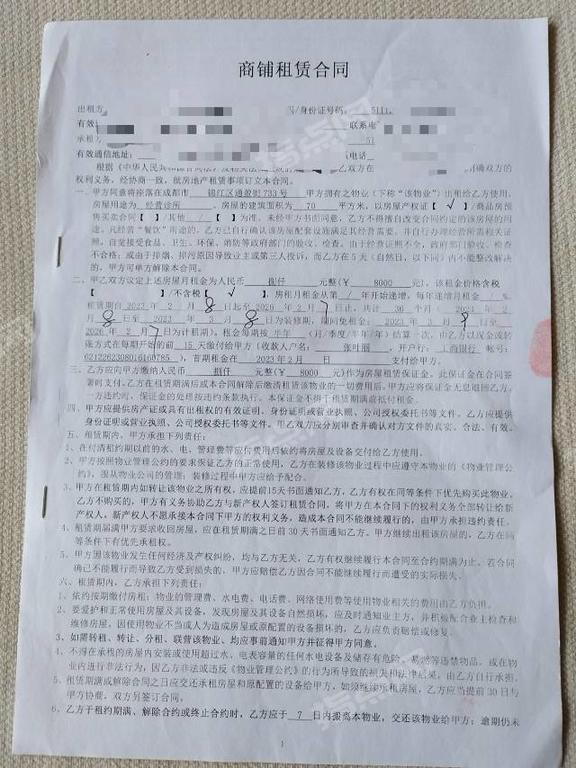 商铺租赁合同
出租方
身份证号码
511
有效
联系电
承租
有效通信地址:
电话
根据《中华人民共和国合同法》
明确双方的
权利义务，经协商一致，就房地产租赁事项订立本合同。
一、甲方同意将座落在成都市 锦江区通盈街733号 甲方拥有之物业（下称“该物业”）出租给乙方使用。
房屋用途为 经营场所 。房屋的建筑面积为 70 平方米，以房屋产权证【 √ 】/商品房预
售买卖合同【 】/其他【 】为准。未经甲方书面同意，乙方不得擅自改变合同约定的该房屋的用
途。凡经营“餐饮”用途的，乙方已自行确认该房屋配套设施满足其经营需要，并自行办理经营所需相关证
照，自觉接受食品、卫生、环保、消防等政府部门的验收、检查。由于经营证照不全，政府部门验收、检查
不合格；或由于排烟、排污原因导致业主或第三人投诉，而乙方在5天（自然日，以下同）内不能整改解决
的，甲方可单方解除本合同。
二、甲乙双方议定上述房屋月租金为人民币 捌仟 元整（¥ 8000 元），该租金价格含税
【 】/不含税【 √ 】，房租月租金从第 / 年开始递增，每年递增月租金 / %，
租赁期自 2023年 2 月 8 日起至 2026年 2 月 7 日止，共计 36 个月（ 2023年 2
月 8 日至 2023年 3 月 8 日为装修期，期间免租金； 2023年 3 月 9 日至
2026年 2 月 7 日为计租期）。租金每期按 半年 （月/季度/半年/年）结算一次，由乙方以现金或转
账方式在每期开始的前 15 天缴付给甲方（收款人户名: 张叶丽 ，开户行: 工商银行 帐号:
6212262308016160785 ），首期租金在 2023年2月 日 支付给甲方。
三、乙方应向甲方缴纳人民币 捌仟 元整（¥ 8000 元）作为房屋租赁保证金，此保证金在合同签
署时支付。乙方在租赁期满后或本合同解除后缴清租赁该业的一切费用后，甲方应将保证金无息退回乙方。
一方违约时，保证金的处理按违约条款执行。本保证金不得于租赁期满前抵付租金。
四、甲方应提供房产证或具有出租权的有效证明、身份证明或营业执照、公司授权委托书等文件。乙方应提供
身份证明或营业执照、公司授权委托书等文件。甲乙双方应分别审查并确认对方文件的真实、合法、有效。
五、租赁期内，甲方承担下列责任:
1、在付清租约期以前的水、电、管理费等应付费用后依约将房屋及设备交付给乙方使用。
2、甲方按照物业管理公约的要求保证乙方的正常使用，乙方在装修该物业过程中应遵守本物业的《物业管理公
约》，服从物业公司的管理；装修过程中甲方应给予配合。
3、甲方在租赁期内如转让该物业之所有权，应提前15天书面通知乙方，乙方有权在同等条件下优先购买此物业。
乙方不购买的，甲方有义务协助乙方与新产权人签订租赁合同，将甲方在本合同下的权利义务全部转让给新
产权人。新产权人不愿承接本合同下甲方的权利义务，造成本合同不能继续履行的，由甲方承担违约责任。
4、租赁期届满甲方要求收回房屋，应在租赁期满之日前30天书面通知乙方。甲方继续出租该房屋的，乙方在同
等条件下有优先承租权。
5、甲方因该物业发生任何经济及产权纠纷，均与乙方无关，乙方有权继续履行本合同至合约期满为止。若合同
确已不能履行而导致乙方受到损失的，甲方应赔偿乙方因合同不能继续履行而遭受的实际损失。
六、租赁期内，乙方承担下列责任:
1、依约按期缴付房租；物业的管理费、水电费、电话费、网络使用费等使用物业相关的费用由乙方负担。
2、要爱护和正常使用房屋及其设备，发现房屋及其设备自然损坏，应及时通知业主方，并积极配合业主检查和
维修房屋，因使用物业不当或人为造成房屋或原配置的设备损坏的，乙方应负责赔偿或修复。
3、如需转租、转让、分租、联营该物业，均应事前通知甲方并征得甲方同意。
4、不得在承租的房屋内安装或使用超过水、电表容量的任何水电设备及储存有危险、易燃等违禁物品，或在物
业内进行非法行为，因乙方非法或违反《物业管理公约》的行为所导致的损失和法律后果，由乙方自行承担。
5、租赁期满或解除合同之日应交还承租房屋和原配置的设备给甲方，如须继续承租房屋，乙方应当提前30日与
甲方协商，双方另签订合同。
6、乙方于租约期满、解除合约或终止合约时，乙方应于 7 日内搬离本物业，交还该物业给甲方；逾期仍未
1